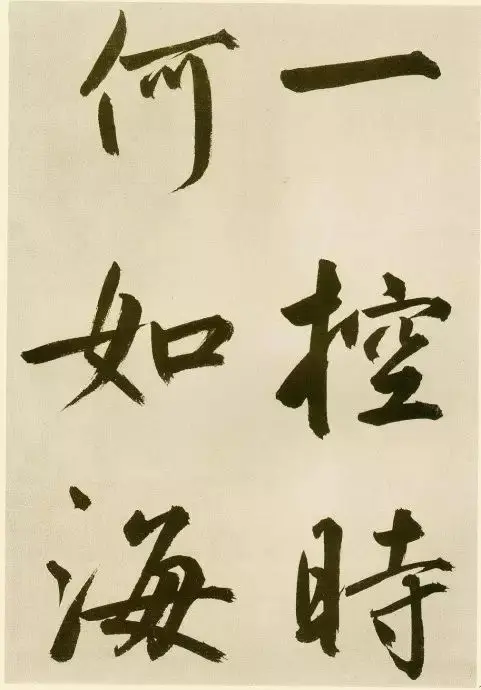 一控時
何如海